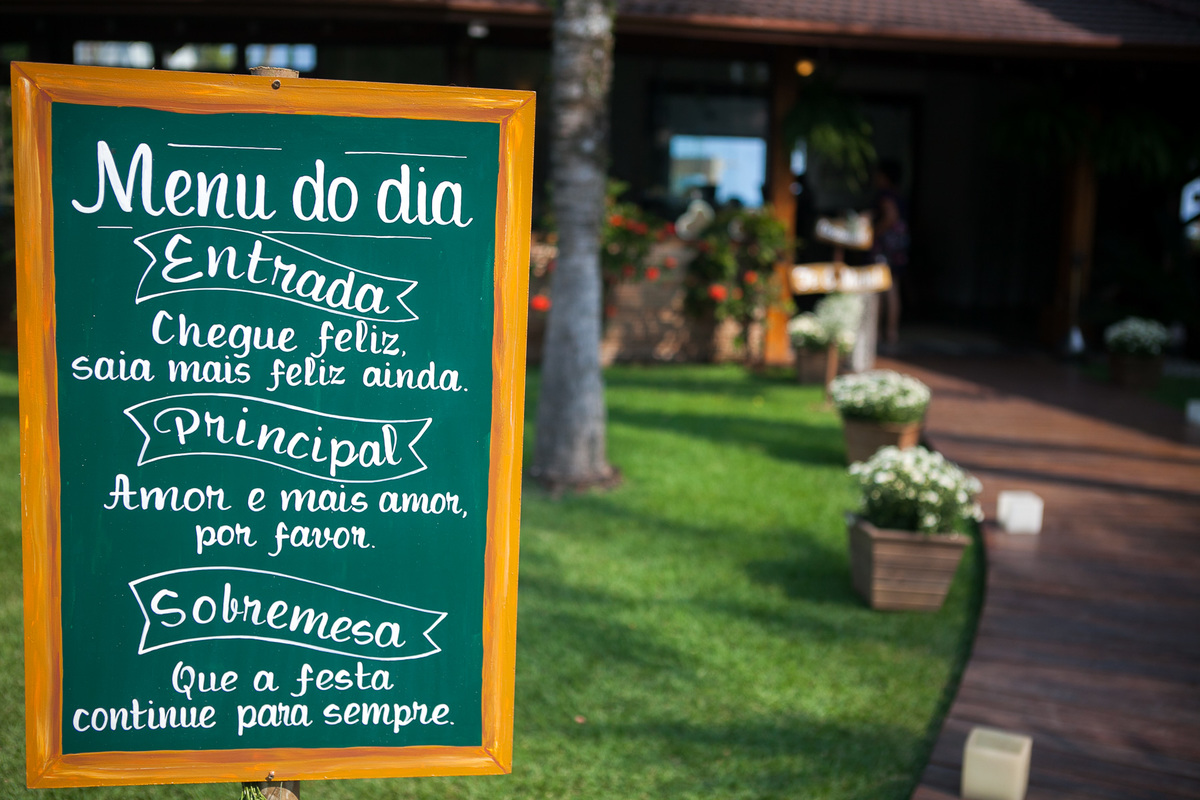 Menu do dia
Entrada
Chegue feliz,
saia mais feliz ainda.
Principal
Amor e mais amor,
por favor.
Sobremesa
Que a festa
continue para sempre.